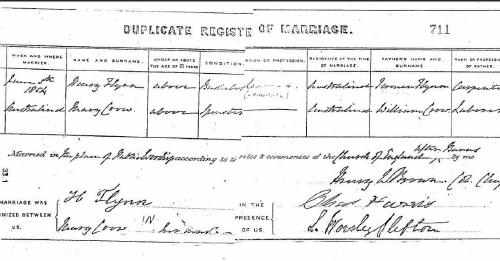 DUPLICATE REGISTER OF MARRIAGE.
711
WHEN AND WHERE MARRIED. NAME AND SURNAME. UNDER OR ABOVE THE AGE OF 21 YEARS CONDITION. RANK OR PROFESSION. RESIDENCE AT THE TIME OF MARRIAGE. FATHER'S NAME AND SURNAME. RANK OR PROFESSION OF FATHER.
1864 Henry Flynn above Bachelor Australind Flynn Carpenter
Australind Mary Coow above Spinster Australind William Coow Labourer
Married in the place of Public Worship according to rites & ceremonies of the Church of England after Banns by me
Henry W Brown Col. Chap
MARRIAGE WAS
H Flynn
IN THE
Chas Harris
NIZED BETWEEN
Mary Coow her mark
PRESENCE
US.
OF US.
L Worsley Clifton